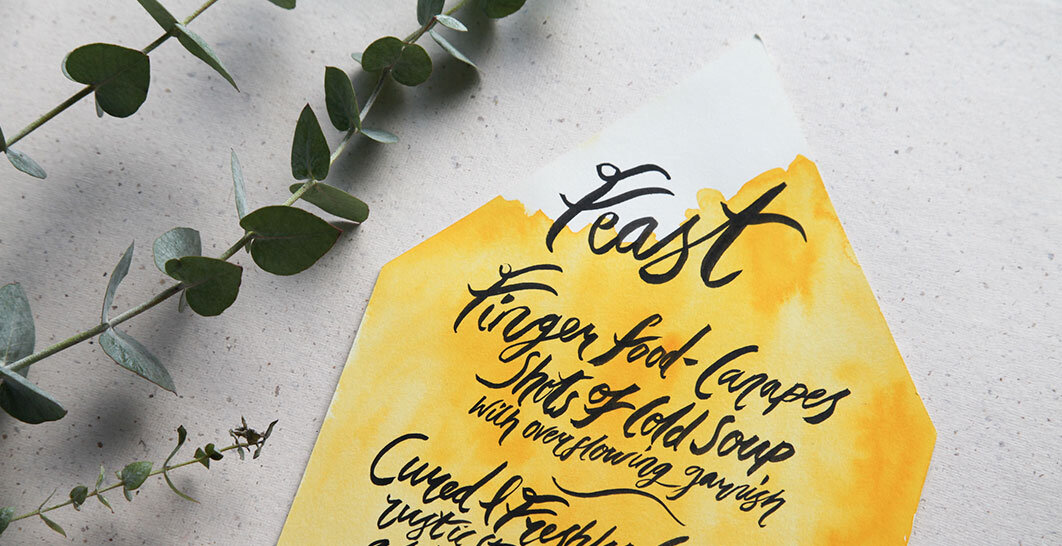 Feast
Finger food - Canapes
Shots of Cold Soup
With overflowing garnish
Cured & Freshly
rustic